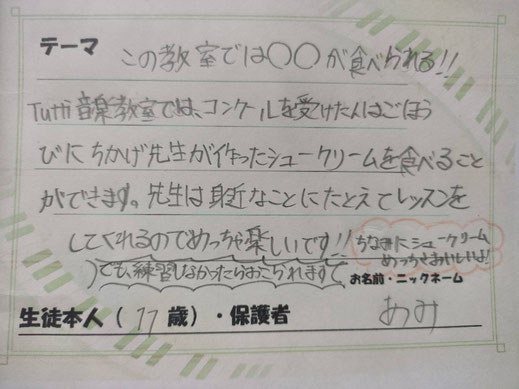 テーマ この教室では〇〇が食べられる!!
Tutti音楽教室では、コンクールを受けた人はごほう
びにちかげ先生が作ったシュークリームを食べること
ができます。先生は身近なことにたとえてレッスンを
してくれるのでめっちゃ楽しいです!!
ちなみにシュークリーム
めっちゃおいしいよ!
でも、練習しなかったらおこられますで
お名前・ニックネーム
生徒本人(17歳)・保護者 あみ